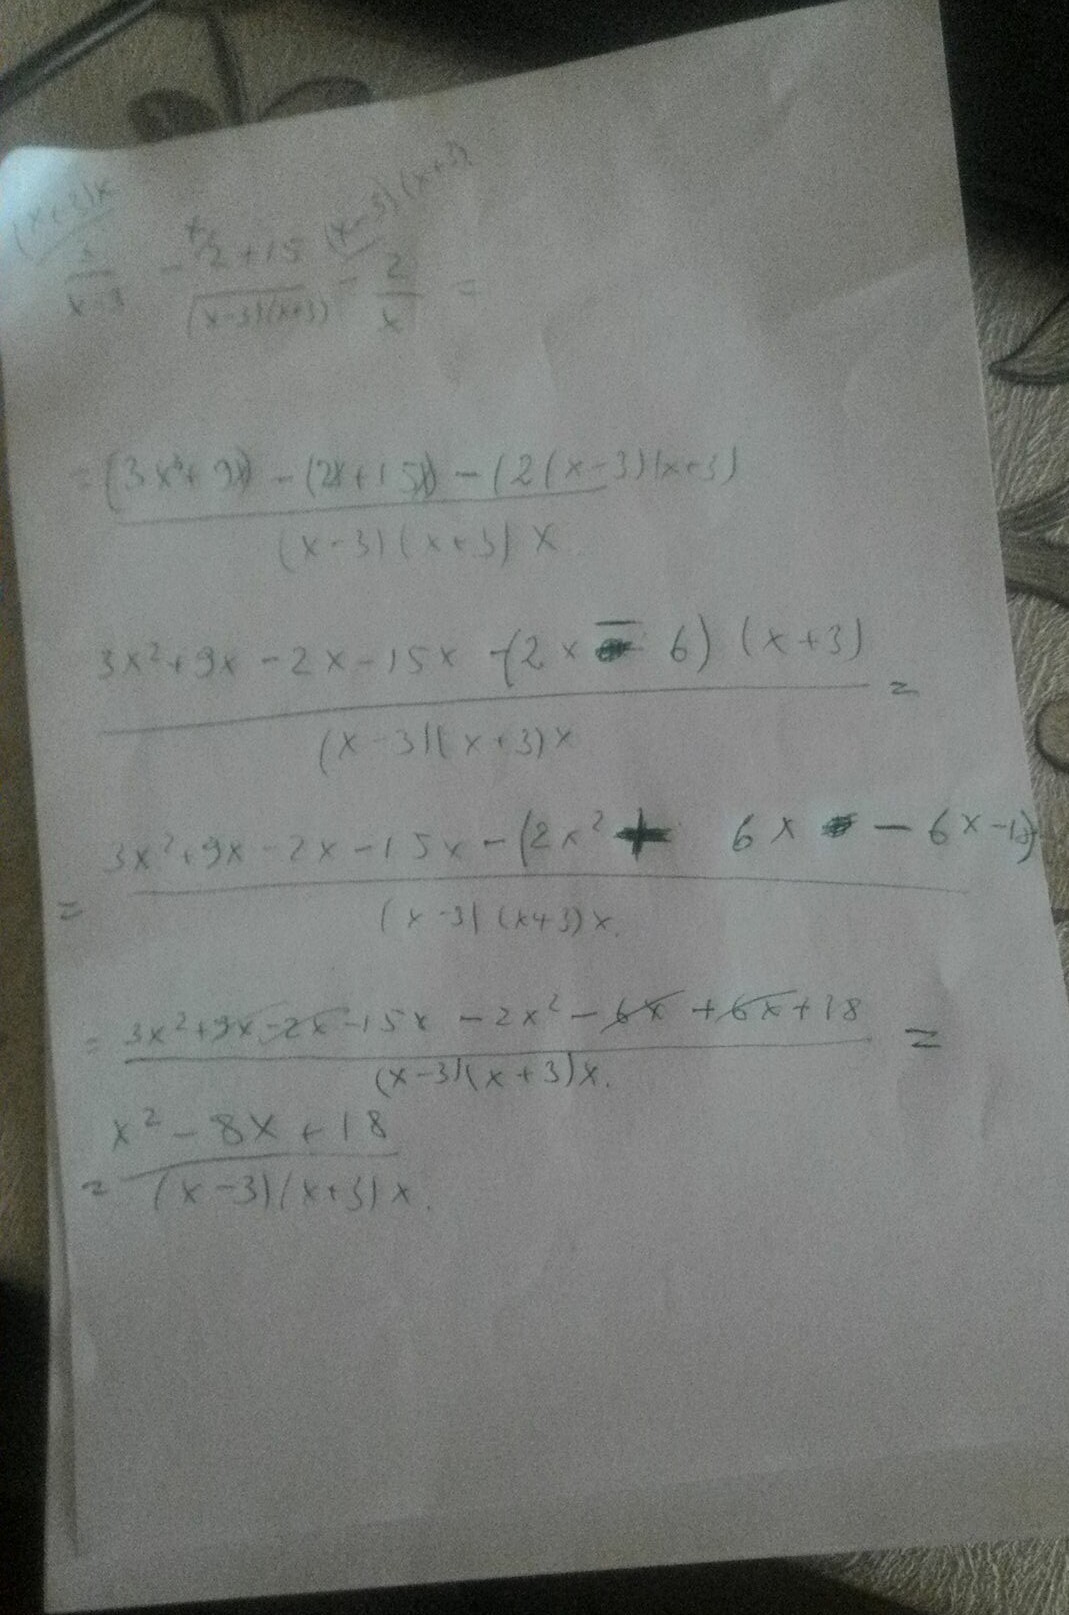 (x+3)x x (x-3)(x+3)
3/(x-3) - (2+15)/((x-3)(x+3)) - 2/x =
= ((3x²+9x) - (2x+15x) - (2(x-3)(x+3))/((x-3)(x+3)x
(3x²+9x-2x-15x-(2x-6)(x+3))/((x-3)(x+3)x) =
= (3x²+9x-2x-15x-(2x²+6x-6x-18))/((x-3)(x+3)x.)
= (3x²+9x-2x-15x-2x²-6x+6x+18)/((x-3)(x+3)x.) =
= (x²-8x+18)/((x-3)(x+3)x.)